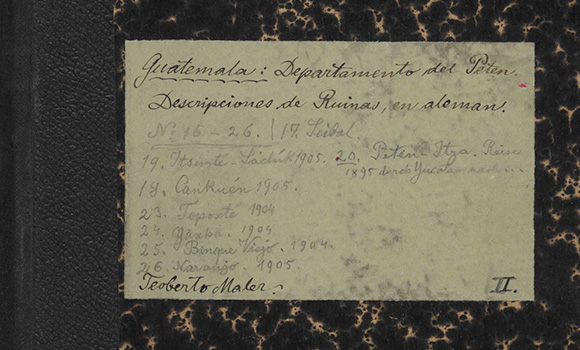 Guatemala: Departamento del Peten.
Descripciones de Ruinas, en aleman.
Nº 16 - 26. | 17. Seibal.
19. Itsimté-Sácluk 1905. 20. Peten Itza. Reise
1895 durch Yucatan nach
18. Cankuén 1905.
23. Topoxté 1904
24. Yaxhá. 1904
25. Benque Viejo. 1904.
26. Naranjo. 1905.
Teoberto Maler. II.